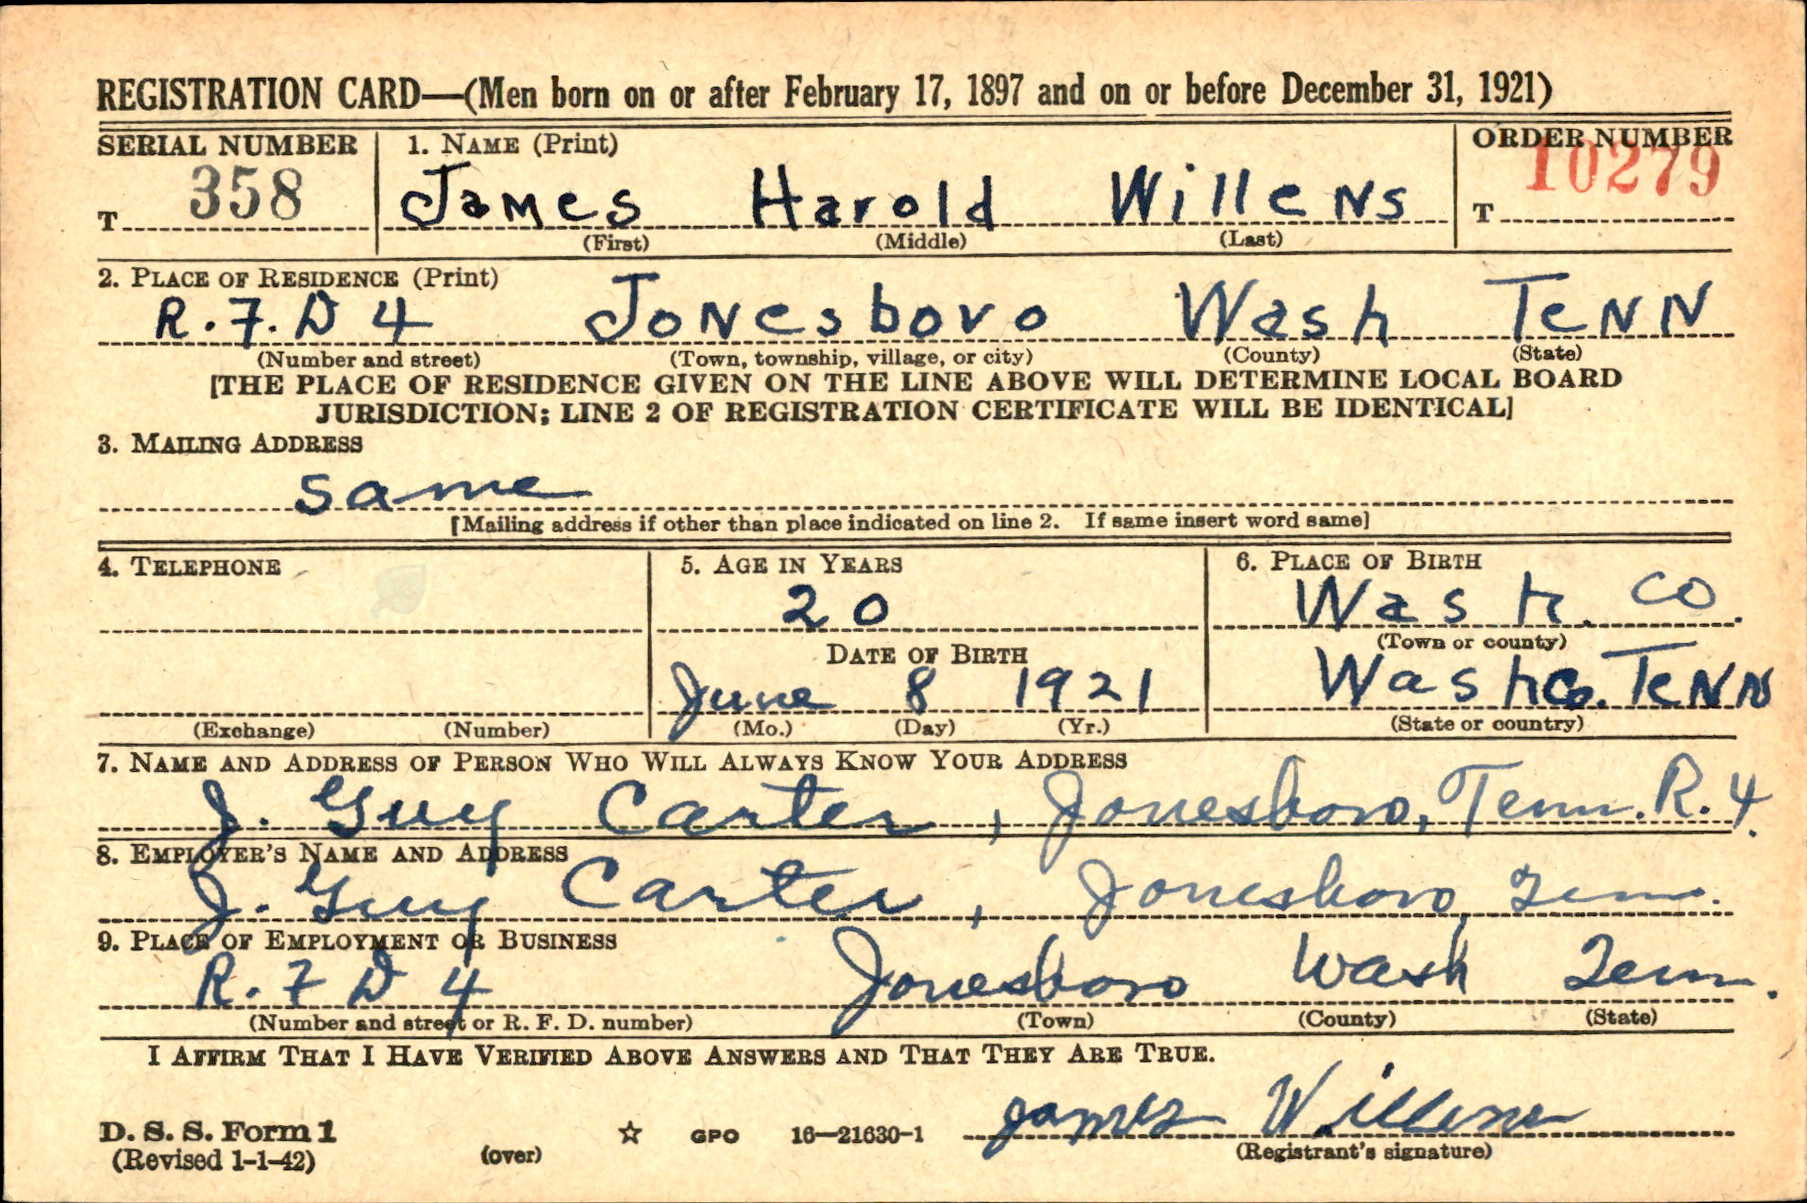 REGISTRATION CARD—(Men born on or after February 17, 1897 and on or before December 31, 1921)
SERIAL NUMBER 1. NAME (Print) ORDER NUMBER
T 358 James Harold Willens T 10279
(First) (Middle) (Last)
2. PLACE OF RESIDENCE (Print)
R.F.D 4 Jonesboro Wash Tenn
(Number and street) (Town, township, village, or city) (County) (State)
[THE PLACE OF RESIDENCE GIVEN ON THE LINE ABOVE WILL DETERMINE LOCAL BOARD
JURISDICTION; LINE 2 OF REGISTRATION CERTIFICATE WILL BE IDENTICAL]
3. MAILING ADDRESS
Same
[Mailing address if other than place indicated on line 2. If same insert word same]
4. TELEPHONE 5. AGE IN YEARS 6. PLACE OF BIRTH
20 Wash. Co.
DATE OF BIRTH (Town or county)
June 8 1921 Wash Co. Tenn
(Exchange) (Number) (Mo.) (Day) (Yr.) (State or country)
7. NAME AND ADDRESS OF PERSON WHO WILL ALWAYS KNOW YOUR ADDRESS
J. Guy Carter, Jonesboro, Tenn. R. 4.
8. EMPLOYER'S NAME AND ADDRESS
J. Guy Carter, Jonesboro, Tenn.
9. PLACE OF EMPLOYMENT OR BUSINESS
R.F D 4 Jonesboro Wash Tenn.
(Number and street or R. F. D. number) (Town) (County) (State)
I AFFIRM THAT I HAVE VERIFIED ABOVE ANSWERS AND THAT THEY ARE TRUE.
James Willens
D. S. S. Form 1 (over) GPO 16—21630-1 (Registrant's signature)
(Revised 1-1-42)